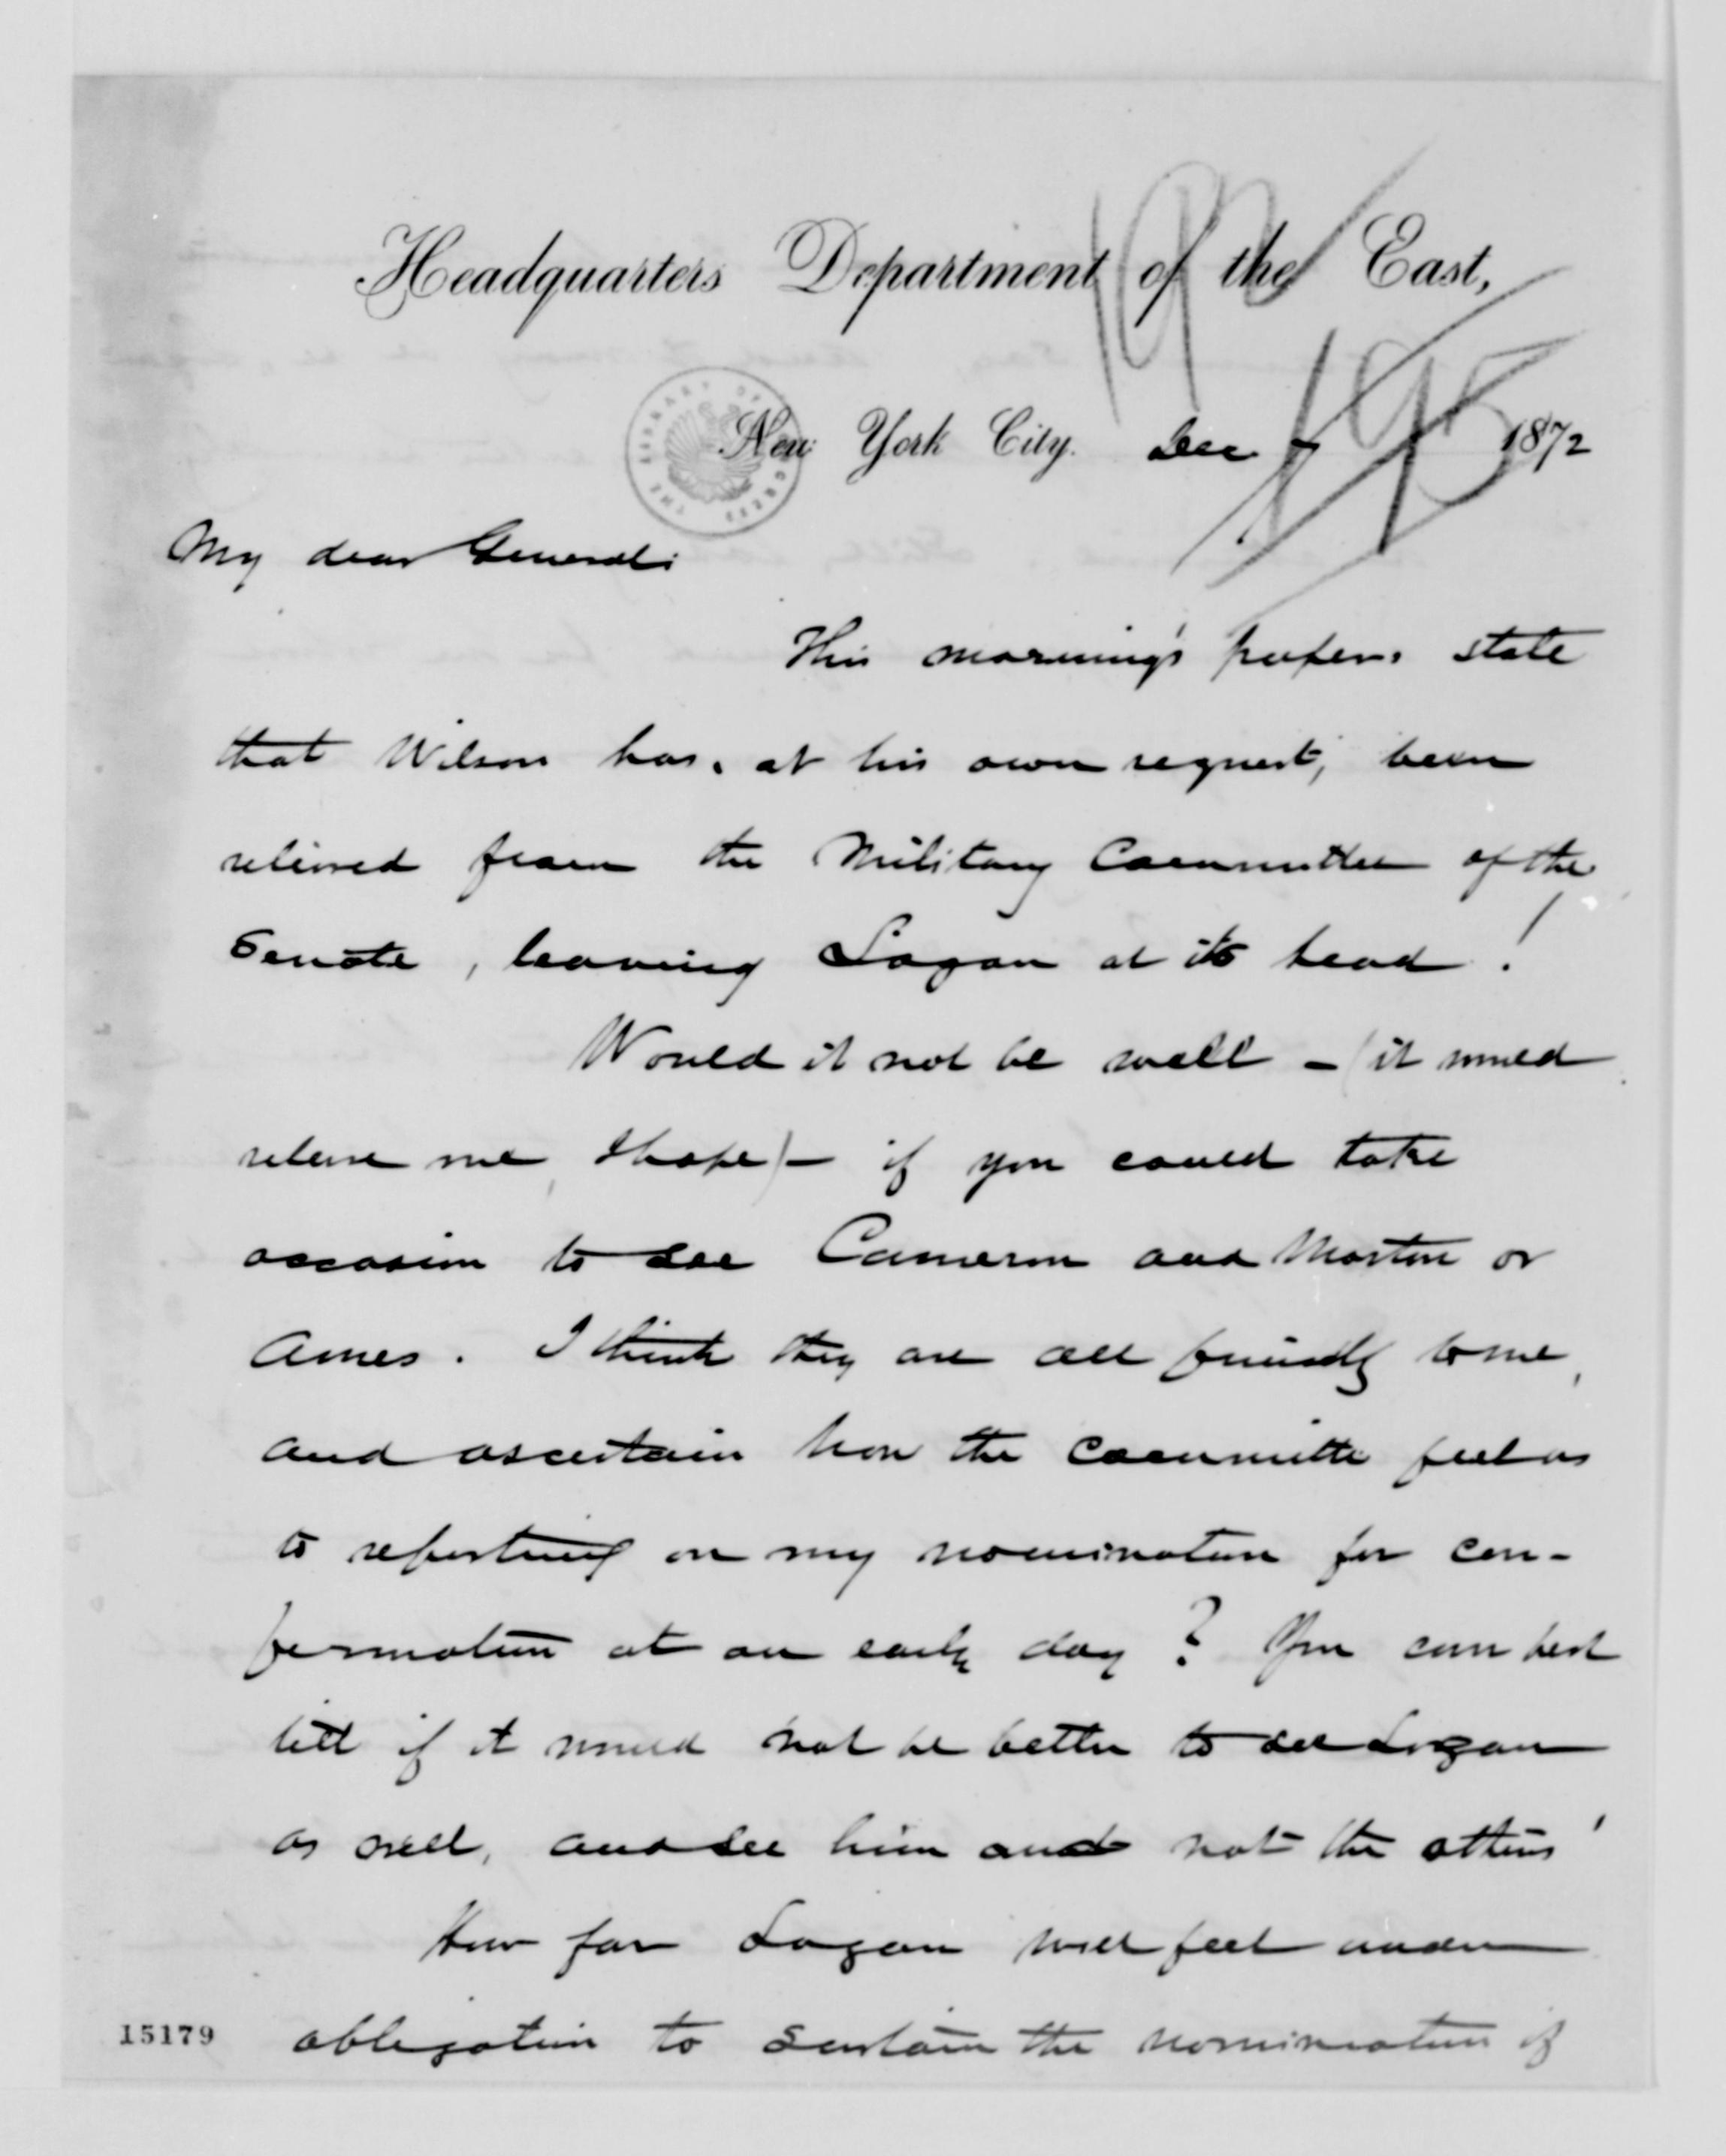 Headquarters Department of the East,
New York City. Dec 7 1872
My dear General:
This morning's papers state
that Wilson has, at his own request, been
relieved from the Military Committee of the
Senate, leaving Logan at its head!
Would it not be well – (it would
relieve me, I hope) – if you could take
occasion to see Cameron and Morton or
Ames. I think they are all friendly to me,
and ascertain how the Committee feel as
to reporting on my nomination for con-
firmation at an early day? You can best
tell if it would not be better to see Logan
as well, and see him and not the others!
How far Logan will feel under
obligation to sustain the nomination of
15179